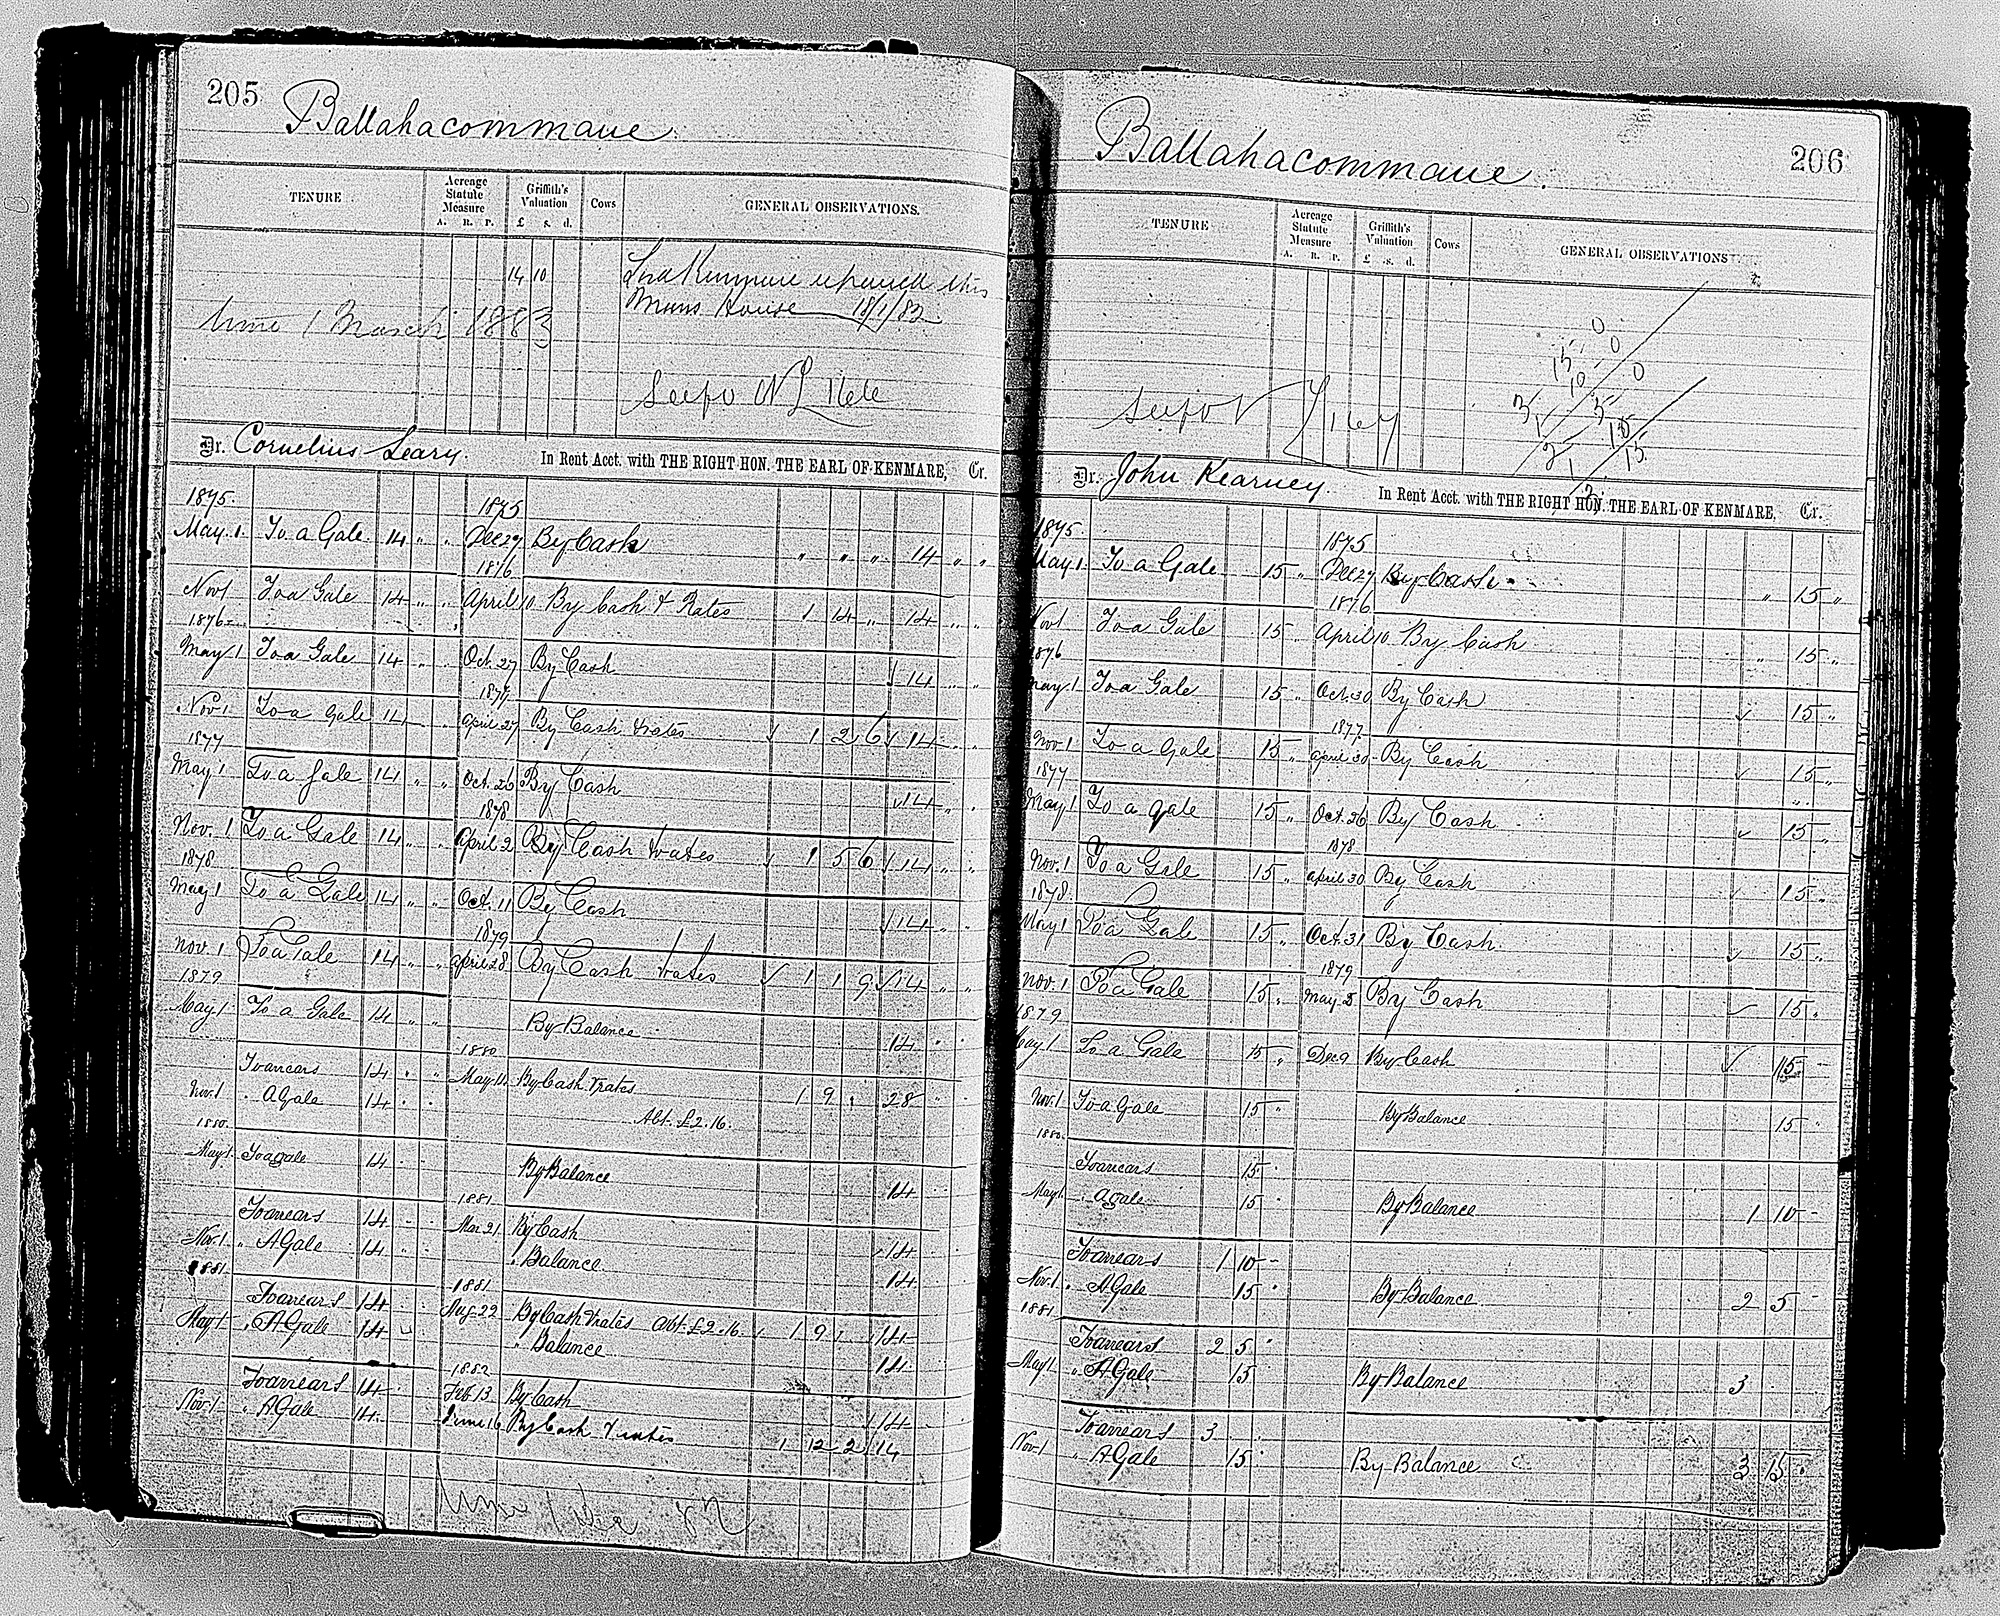 205
Ballahacommane
TENURE
Acreage Statute Measure
A. R. P.
Griffith's Valuation
£ s. d.
Cows
GENERAL OBSERVATIONS.
14 10
Lord Kenmare repaired this
Mans House 18/1/82
time 1 March 1883
Dr. Cornelius Leary. In Rent Acct. with THE RIGHT HON. THE EARL OF KENMARE, Cr.
1875. 1875
May. 1. To a Gale. 14 " " Dec 29 By Cash " " " 14 " "
1876
Nov 1 To a Gale 14 " " April 10 By Cash & Rates 1 14 " 14 " "
1876
May 1 To a Gale 14 " " Oct. 27 By Cash 14 " "
1877
Nov 1 To a Gale 14 " " April 27 By Cash & rates 1 2 6 14 " "
1877
May 1 To a Gale 14 " " Oct. 26 By Cash 14 " "
1878
Nov. 1 To a Gale 14 " " April 2 By Cash & rates 1 5 6 14 " "
1878
May 1 To a Gale 14 " " Oct. 11 By Cash 14 " "
1879
Nov. 1 To a Gale 14 " " April 28 By Cash & rates 1 1 9 14 " "
1879
May 1 To a Gale 14 " " By Balance 14 " "
1880
To arrears 14 " " May 11 By Cash & rates 1 9 " 28 " "
Nov. 1 " A Gale 14 " " Abt. £2.16.
1880.
May 1. To a gale 14 " By Balance 14 " "
1881
To arrears 14 " " Mar 21 By Cash 14
Nov. 1 " A Gale 14 " " " Balance 14
1881 1881
To arrears 14 Aug. 22 By Cash & rates Abt. £2.16. 1 9 14
May 1 " A Gale 14 " Balance 14
1882
To arrears 14 Feb. 13 By Cash 14
Nov. 1 " A Gale 14 June 16 By Cash & rates 1 12 2 14
206
Ballahacommane.
TENURE
Acreage Statute Measure
A. R. P.
Griffith's Valuation
£ s. d.
Cows
GENERAL OBSERVATIONS
Dr. John Kearney. In Rent Acct. with THE RIGHT HON. THE EARL OF KENMARE, Cr.
1875 1875
May 1. To a Gale 15 " Dec 27 By Cash " 15 "
1876
Nov 1 To a Gale 15 " April 10 By Cash " 15 "
1876
May 1 To a Gale 15 " Oct. 30 By Cash 15 "
1877
Nov. 1 To a Gale 15 " April 30 By Cash 15 "
1877
May 1 To a gale 15 " Oct. 26 By Cash 15 "
1878
Nov. 1 To a Gale 15 " April 30 By Cash 15 "
1878
May 1 To a Gale 15 " Oct. 31 By Cash 15 "
1879
Nov. 1 To a Gale 15 " May 5 By Cash 15 "
1879
May 1 To a Gale 15 " Dec 9 By Cash 15
Nov. 1 To a Gale 15 " By Balance 15
1880.
To arrears 15
May 1. " A gale 15 By Balance 1 10
To arrears 1 10
Nov. 1 " A Gale 15 By Balance 2 5
1881
To arrears 2 5
May 1 " A Gale 15 By Balance 3
To arrears 3
Nov. 1 " A Gale 15 By Balance 3 15